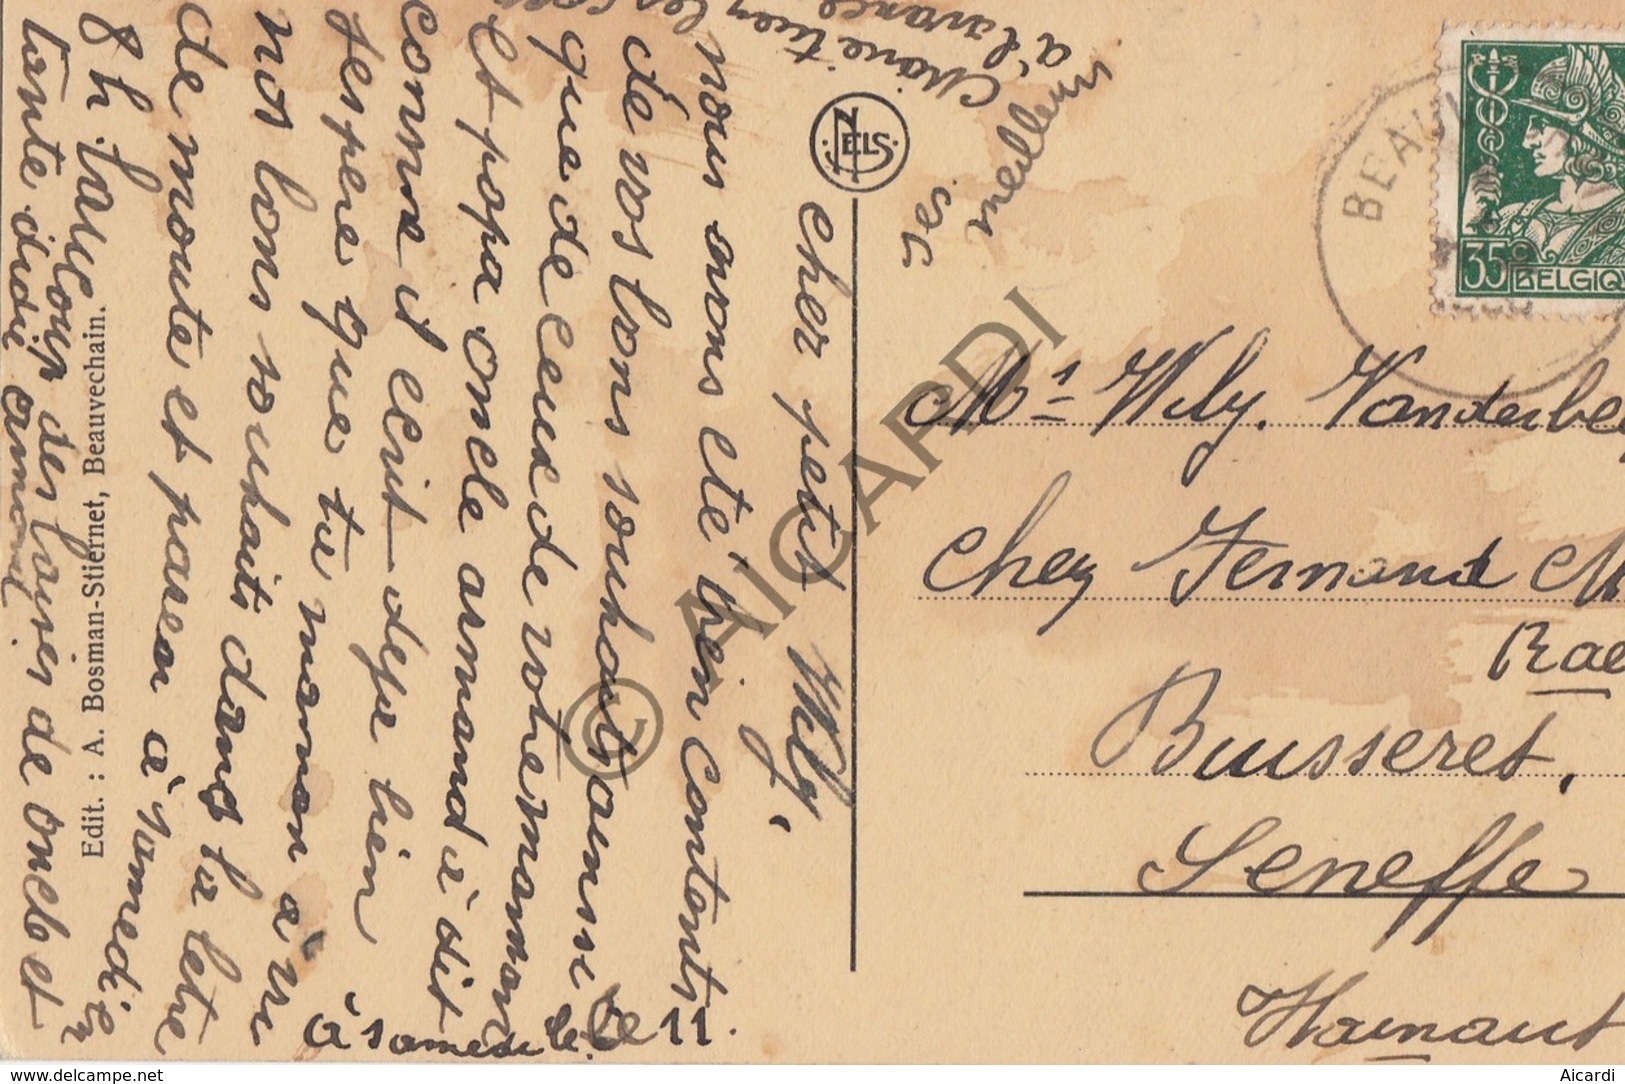 cher petit Wily
nous avons eté bien contents
de vos bons souhaits aunsi
que de ceux de votre maman
et papa oncle armand a dit
comme il ecrit deja bien
j'espere que tu maman a vu
nos bons souhaits dans la letre
de moute et parean à samedi
8 h. baucoup des baises de oncle et
tante didie armand
à samedi le 11.
Chone tien les
a l'avance
meilleurs
NELS
Edit. : A. Bosman-Stiernet, Beauvechain.
BEAUV
35c
BELGIQU
Mr Wily. Vanderbe
chez Fernand M
Rae
Buisseret.
Seneffe
Hainaut
© AICARDI
www.delcampe.net
Aicardi